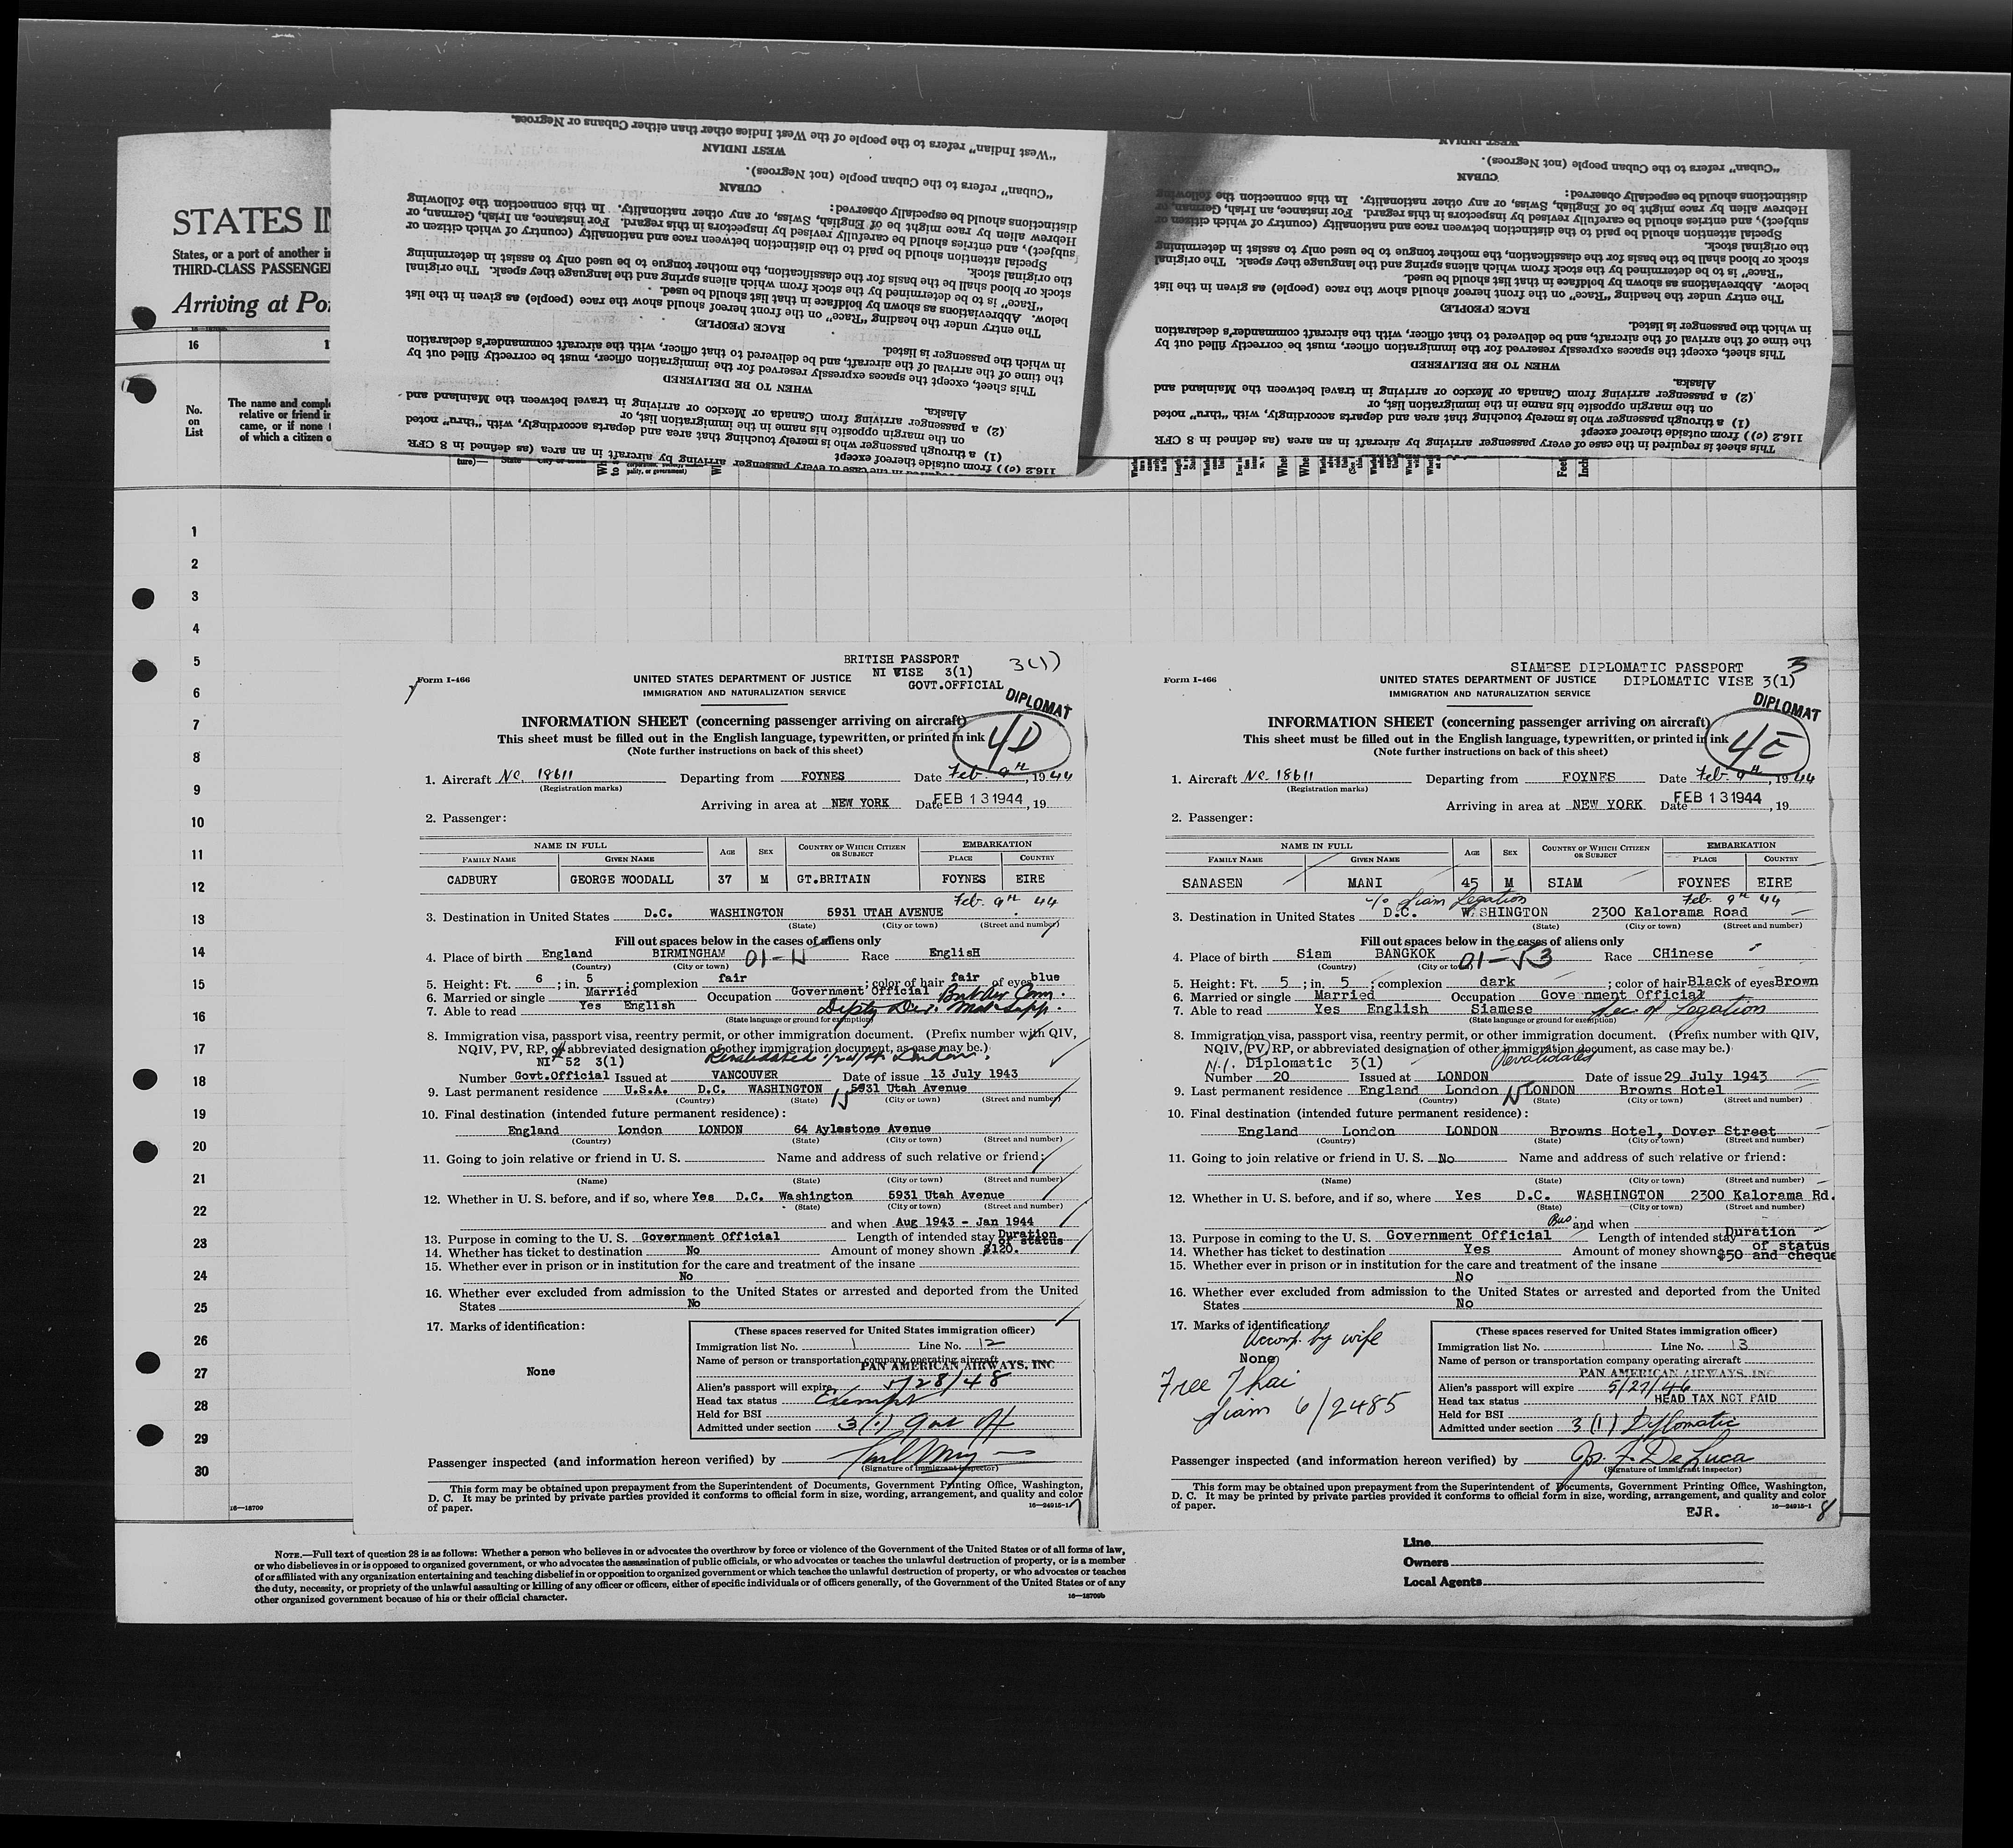 STATES IN
States, or a port of another in
THIRD-CLASS PASSENGE
Arriving at Po
16
No.
on
List
The name and compl
relative or friend in
came, or if none
of which a citizen o
"West Indian" refers to the people of the West Indies other than either Cubans or Negroes.
WEST INDIAN
"Cuban" refers to the Cuban people (not Negroes).
CUBAN
distinctions should be especially observed:
Hebrew alien by race might be of English, Swiss, or any other nationality. In this connection the following
subject), and entries should be carefully revised by inspectors in this regard. For instance, an Irish, German, or
Special attention should be paid to the distinction between race and nationality (country of which citizen or
the original stock.
stock or blood shall be the basis for the classification, the mother tongue to be used only to assist in determining
"Race" is to be determined by the stock from which aliens spring and the language they speak. The original
below. Abbreviations as shown by boldface in that list should be used.
The entry under the heading "Race" on the front hereof should show the race (people) as given in the list
RACE (PEOPLE)
in which the passenger is listed.
the time of the arrival of the aircraft, and be delivered to that officer, with the aircraft commander's declaration
This sheet, except the spaces expressly reserved for the immigration officer, must be correctly filled out by
WHEN TO BE DELIVERED
Alaska.
(2) a passenger arriving from Canada or Mexico or arriving in travel between the Mainland and
on the margin opposite his name in the immigration list, or
(1) a through passenger who is merely touching that area and departs accordingly, with "thru" noted
116.2 (c)) from outside thereof except
required in the case of every passenger arriving by aircraft in an area (as defined in 8 CFR
WEST INDIAN
"Cuban" refers to the Cuban people (not Negroes).
CUBAN
distinctions should be especially observed:
Hebrew alien by race might be of English, Swiss, or any other nationality. In this connection the following
subject), and entries should be carefully revised by inspectors in this regard. For instance, an Irish, German, or
Special attention should be paid to the distinction between race and nationality (country of which citizen or
the original stock.
stock or blood shall be the basis for the classification, the mother tongue to be used only to assist in determining
"Race" is to be determined by the stock from which aliens spring and the language they speak. The original
below. Abbreviations as shown by boldface in that list should be used.
The entry under the heading "Race" on the front hereof should show the race (people) as given in the list
RACE (PEOPLE)
in which the passenger is listed.
the time of the arrival of the aircraft, and be delivered to that officer, with the aircraft commander's declaration
This sheet, except the spaces expressly reserved for the immigration officer, must be correctly filled out by
WHEN TO BE DELIVERED
Alaska.
(2) a passenger arriving from Canada or Mexico or arriving in travel between the Mainland and
on the margin opposite his name in the immigration list, or
(1) a through passenger who is merely touching that area and departs accordingly, with "thru" noted
116.2 (c)) from outside thereof except
This sheet is required in the case of every passenger arriving by aircraft in an area (as defined in 8 CFR
1
2
3
4
5
6
7
8
9
10
11
12
13
14
15
16
17
18
19
20
21
22
23
24
25
26
27
28
29
30
16—18709
BRITISH PASSPORT 3(1)
NI VISE 3(1)
GOVT.OFFICIAL
DIPLOMAT
4D
Form I-466
UNITED STATES DEPARTMENT OF JUSTICE
IMMIGRATION AND NATURALIZATION SERVICE
INFORMATION SHEET (concerning passenger arriving on aircraft)
This sheet must be filled out in the English language, typewritten, or printed in ink
(Note further instructions on back of this sheet)
1. Aircraft NC. 18611 Departing from FOYNES Date Feb. 9th, 1944
(Registration marks)
Arriving in area at NEW YORK Date FEB 13 1944, 19
2. Passenger:
NAME IN FULL AGE SEX COUNTRY OF WHICH CITIZEN OR SUBJECT EMBARKATION
FAMILY NAME GIVEN NAME PLACE COUNTRY
CADBURY GEORGE WOODALL 37 M GT.BRITAIN FOYNES EIRE
Feb. 9th 44
3. Destination in United States D.C. WASHINGTON 5931 UTAH AVENUE
(State) (City or town) (Street and number)
Fill out spaces below in the cases of aliens only
4. Place of birth England BIRMINGHAM Race EnglisH
(Country) (City or town)
5. Height: Ft. 6; in. 5; complexion fair; color of hair fair of eyes blue
6. Married or single Married Occupation Government Official Brit Air Comm.
7. Able to read Yes English Depty Dir. Mat Supp.
(State language or ground for exemption)
8. Immigration visa, passport visa, reentry permit, or other immigration document. (Prefix number with QIV,
NQIV, PV, RP, or abbreviated designation of other immigration document, as case may be.)
NI 52 3(1) Revalidated London
Number Govt.Official Issued at VANCOUVER Date of issue 13 July 1943
9. Last permanent residence U.S.A. D.C. WASHINGTON 5931 Utah Avenue
(Country) (State) (City or town) (Street and number)
10. Final destination (intended future permanent residence):
England London LONDON 64 Aylestone Avenue
(Country) (State) (City or town) (Street and number)
11. Going to join relative or friend in U. S. Name and address of such relative or friend:
(Name) (State) (City or town) (Street and number)
12. Whether in U. S. before, and if so, where Yes D.C. Washington 5931 Utah Avenue
(State) (City or town) (Street and number)
and when Aug 1943 - Jan 1944
13. Purpose in coming to the U. S. Government Official Length of intended stay Duration of status
14. Whether has ticket to destination No Amount of money shown $120.
15. Whether ever in prison or in institution for the care and treatment of the insane
No
16. Whether ever excluded from admission to the United States or arrested and deported from the United
States No
17. Marks of identification:
None
(These spaces reserved for United States immigration officer)
Immigration list No. 1 Line No. 12
Name of person or transportation company operating aircraft
PAN AMERICAN AIRWAYS, INC
Alien's passport will expire 5/28/48
Head tax status Exempt
Held for BSI
Admitted under section 3(1) Gov Off
Passenger inspected (and information hereon verified) by
(Signature of immigrant inspector)
This form may be obtained upon prepayment from the Superintendent of Documents, Government Printing Office, Washington,
D. C. It may be printed by private parties provided it conforms to official form in size, wording, arrangement, and quality and color
of paper. 16—24915-1
7
SIAMESE DIPLOMATIC PASSPORT 3
DIPLOMATIC VISE 3(1)
DIPLOMAT
4E
Form I-466
UNITED STATES DEPARTMENT OF JUSTICE
IMMIGRATION AND NATURALIZATION SERVICE
INFORMATION SHEET (concerning passenger arriving on aircraft)
This sheet must be filled out in the English language, typewritten, or printed in ink
(Note further instructions on back of this sheet)
1. Aircraft NC. 18611 Departing from FOYNES Date Feb. 9th, 1944
(Registration marks)
Arriving in area at NEW YORK Date FEB 13 1944, 19
2. Passenger:
NAME IN FULL AGE SEX COUNTRY OF WHICH CITIZEN OR SUBJECT EMBARKATION
FAMILY NAME GIVEN NAME PLACE COUNTRY
SANASEN MANI 45 M SIAM FOYNES EIRE
c/o Siam Legation Feb. 9th 44
3. Destination in United States D.C. WASHINGTON 2300 Kalorama Road
(State) (City or town) (Street and number)
Fill out spaces below in the cases of aliens only
4. Place of birth Siam BANGKOK 01-53 Race CHinese
(Country) (City or town)
5. Height: Ft. 5; in. 5; complexion dark; color of hair Black of eyes Brown
6. Married or single Married Occupation Gove nment Official
7. Able to read Yes English Siamese Sec. of Legation
(State language or ground for exemption)
8. Immigration visa, passport visa, reentry permit, or other immigration document. (Prefix number with QIV,
NQIV, PV, RP, or abbreviated designation of other immigration document, as case may be.)
N.I. Diplomatic 3(1) Revalidated
Number 20 Issued at LONDON Date of issue 29 July 1943
9. Last permanent residence England London LONDON Browns Hotel
(Country) (State) (City or town) (Street and number)
10. Final destination (intended future permanent residence):
England London LONDON Browns Hotel, Dover Street
(Country) (State) (City or town) (Street and number)
11. Going to join relative or friend in U. S. No Name and address of such relative or friend:
(Name) (State) (City or town) (Street and number)
12. Whether in U. S. before, and if so, where Yes D.C. WASHINGTON 2300 Kalorama Rd.
(State) (City or town) (Street and number)
Bus. and when
13. Purpose in coming to the U. S. Government Official Length of intended stay Duration of status
14. Whether has ticket to destination Yes Amount of money shown $50 and cheque
15. Whether ever in prison or in institution for the care and treatment of the insane
No
16. Whether ever excluded from admission to the United States or arrested and deported from the United
States No
17. Marks of identification:
Accomp. by wife
None
Free Thai
Siam 6/2485
(These spaces reserved for United States immigration officer)
Immigration list No. 1 Line No. 13
Name of person or transportation company operating aircraft
PAN AMERICAN AIRWAYS, INC.
Alien's passport will expire 5/27/46
Head tax status HEAD TAX NOT PAID
Held for BSI
Admitted under section 3(1) Diplomatic
Passenger inspected (and information hereon verified) by Jos. F. DeLuca
(Signature of immigrant inspector)
This form may be obtained upon prepayment from the Superintendent of Documents, Government Printing Office, Washington,
D. C. It may be printed by private parties provided it conforms to official form in size, wording, arrangement, and quality and color
of paper. EJR. 16—24915-1
8
NOTE.—Full text of question 28 is as follows: Whether a person who believes in or advocates the overthrow by force or violence of the Government of the United States or of all forms of law,
or who disbelieves in or is opposed to organized government, or who advocates the assassination of public officials, or who advocates or teaches the unlawful destruction of property, or is a member
of or affiliated with any organization entertaining and teaching disbelief in or opposition to organized government or which teaches the unlawful destruction of property, or who advocates or teaches
the duty, necessity, or propriety of the unlawful assaulting or killing of any officer or officers, either of specific individuals or of officers generally, of the Government of the United States or of any
other organized government because of his or their official character. 16—18709b
Line
Owners
Local Agents